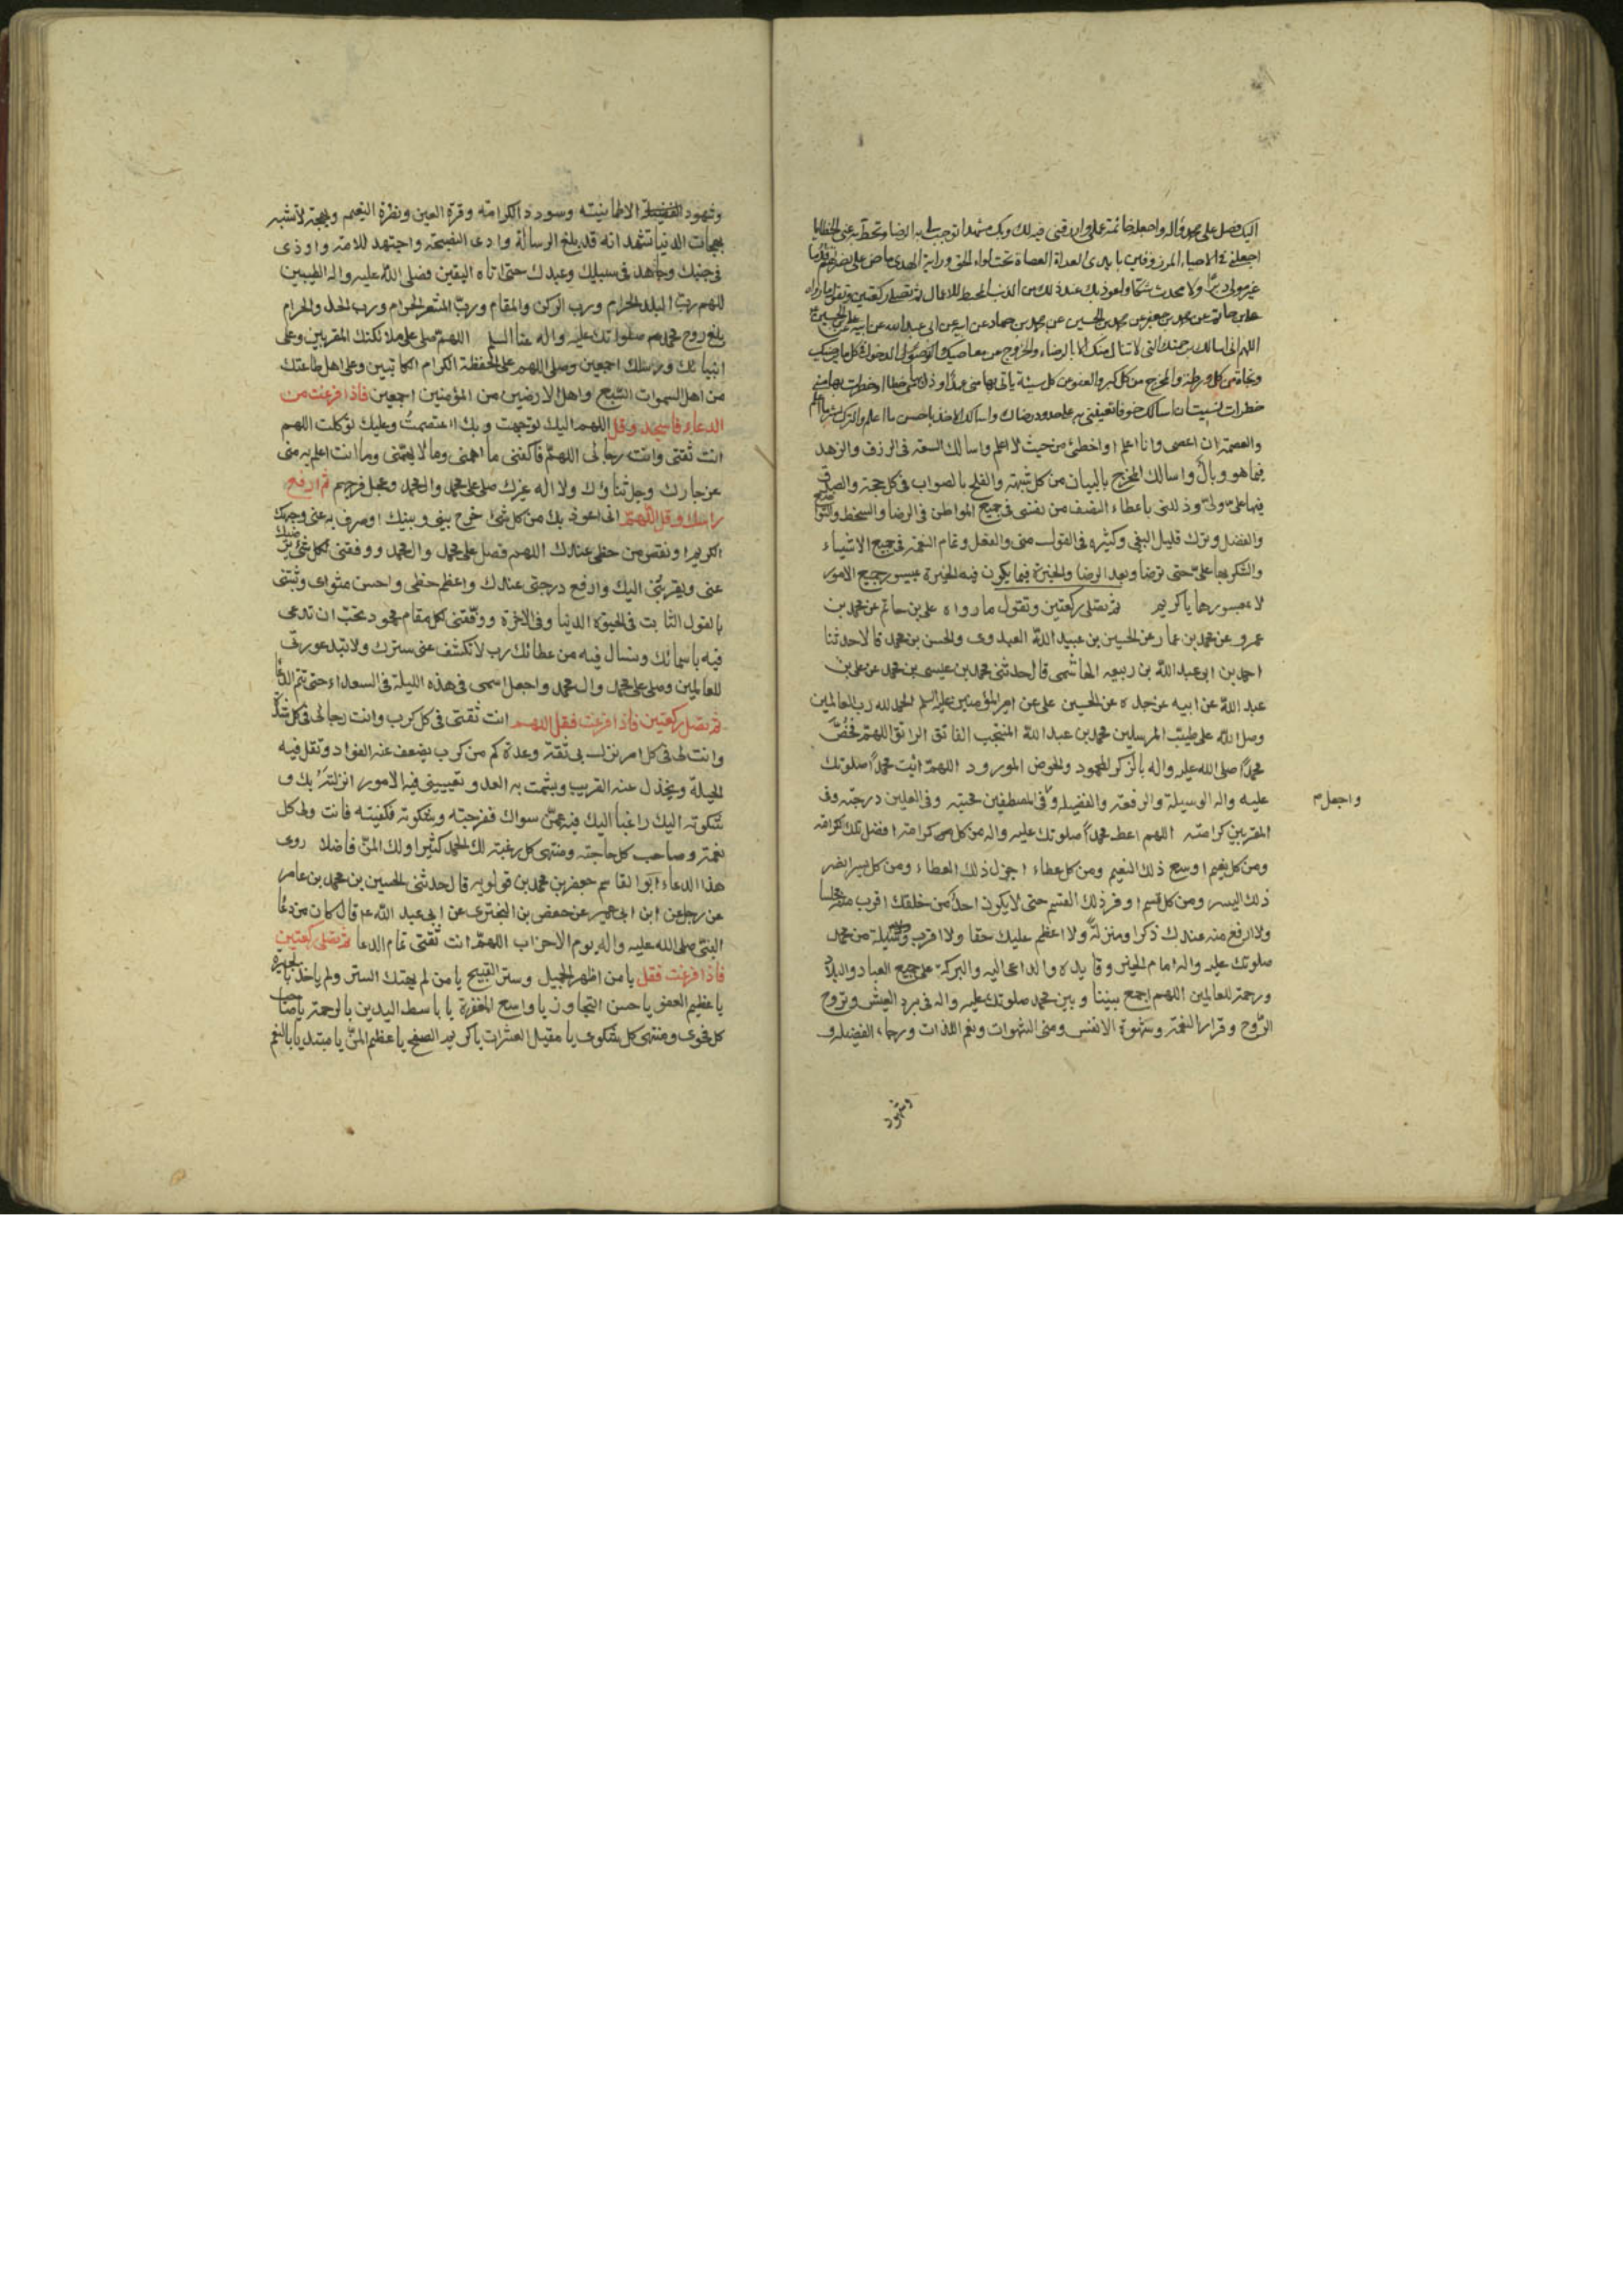 اليك فصل على محمد واله واجعله خاتمة عملى وارزقنى فيه لك وبك مشهدا توجب لى به الرضا وتحط به عنى الخطايا
اجعلنى فى الاحياء المرزوقين بايدى العداة العصاة تحت لواء الحق وراية الهدى ماض على نصرتهم قدما
غير مولى دبرا ولا محدث شكا واعوذ بك عند ذلك من الذنب المحبط للاعمال ثم تصلى ركعتين وتقول ما رواه
على بن حاتم عن محمد بن جعفر عن محمد بن الحسين عن محمد بن حماد عن ابيه عن ابى عبد الله عن ابيه
اللهم انى اسالك برحمتك التى لا تنال منك الا بالرضاء والخروج من معاصيك والدخول فى كل ما يرضيك
ونجاة من كل ورطة والمخرج من كل كبر والعفو عن كل سيئة ياتى بها منى عمد او ذل بها منى خطا او خطرت بها منى
خطرات نسيت ان اسالك خوفا تعيننى به على حدود رضاك واسالك الاخذ باحسن ما اعلم والترك لشر ما اعلم
والعصمة ان اعصى وانا اعلم او اخطئ من حيث لا اعلم واسالك السعة فى الرزق والزهد
فيما هو وبال واسالك المخرج بالبيان من كل شبهة والفلج بالصواب فى كل حجة والصدق
فيما على ولى وذللنى باعطاء النصف من نفسى فى جميع المواطن فى الرضا والسخط والتواضع
والفضل وترك قليل البغى وكثيره فى القول منى والفعل وتمام النعمة فى جميع الاشياء
والشكر بها على حتى ترضا وبعد الرضا والخيرة فيما يكون فيه الخيرة بميسور جميع الامور
لا بمعسورها يا كريم ثم تصلى ركعتين وتقول ما رواه على بن حاتم عن محمد بن
عمرو عن محمد بن عمار عن الحسين بن عبيد الله العبدوى والحسن بن محمد قالا حدثنا
احمد بن ابى عبد الله بن ربيعه الهاشمى قال حدثنى محمد بن عيسى بن محمد عن على بن
عبد الله عن ابيه عن جده عن الحسين على عن امير المؤمنين عليه السلم الحمد لله رب العالمين
وصل الله على طيب المرسلين محمد بن عبد الله المنتجب الفاتق الراتق اللهم فخص
محمدا صلى الله عليه واله بالذكر المحمود والحوض المورود اللهم ائت محمدا صلوتك
عليه واله الوسيلة والرفعة والفضيلة وفى المصطفين محبته وفى العليين درجته وفى
واجعل
المقربين كرامته اللهم اعط محمدا صلوتك عليه واله من كل كرامة افضل تلك الكرامة
ومن كل نعيم اوسع ذلك النعيم ومن كل عطاء اجزل ذلك العطاء ومن كل يسر انضر
ذلك اليسر ومن كل قسم اوفر ذلك القسم حتى لا يكون احد من خلقك اقرب منه مجلسا
ولا ارفع منه عندك ذكرا ومنزلة ولا اعظم عليك حقا ولا اقرب وسيلة من محمد
صلوتك عليه واله امام الخير وقايده والداعى اليه والبركة على جميع العباد والبلاد
ورحمة للعالمين اللهم اجمع بيننا وبين محمد صلوتك عليه واله فى برد العيش وتروح
الروح وقرار النعمة وشهوة الانفس ومنى الشهوات ونعم اللذات ورجاء الفضيلة و
وشهود
وشهود الطمانينة وسودد الكرامة وقرة العين ونضرة النعيم وبهجة لا تشبه
بهجات الدنيا نشهد انه قد بلغ الرسالة وادى النصيحة واجتهد للامة واوذى
فى جنبك وجاهد فى سبيلك وعبدك حتى اتاه اليقين فصلى الله عليه واله الطيبين
اللهم رب البلد الحرام ورب الركن والمقام ورب المشعر الحرام ورب الحل والحرام
بلغ روح محمد صلواتك عليه واله عنا السلم اللهم صل على ملائكتك المقربين وعلى
انبيائك ورسلك اجمعين وصل اللهم على الحفظة الكرام الكاتبين وعلى اهل طاعتك
من اهل السموات السبع واهل الارضين من المؤمنين اجمعين فاذا فرغت من
الدعاء فاسجد وقل اللهم اليك توجهت وبك اعتصمت وعليك توكلت اللهم
انت ثقتى وانت رجائى اللهم فاكفنى ما اهمنى وما لا يهمنى وما انت اعلم به منى
عز جارك وجل ثناؤك ولا اله غيرك صل على محمد وال محمد وعجل فرجهم ثم ارفع
راسك وقل اللهم انى اعوذ بك من كل شئ زحزح بينى وبينك او صرف به عنى وجهك
الكريم او نقص من حظى عندك اللهم فصل على محمد وال محمد ووفقنى لكل شئ يرضيك
عنى ويقربنى اليك وارفع درجتى عندك واعظم حظى واحسن مثواى وثبتنى
بالقول الثابت فى الحيوة الدنيا وفى الاخرة ووفقنى لكل مقام محمود تحب ان تدعى
فيه باسمائك وتسال فيه من عطائك رب لا تكشف عنى سترك ولا تبد عورتى
للعالمين وصل على محمد وال محمد واجعل اسمى فى هذه الليلة فى السعداء حتى تتم الدعا
ثم تصلى ركعتين فاذا فرغت فقل اللهم انت ثقتى فى كل كرب وانت رجائى فى كل شدة
وانت لى فى كل امر نزل بى ثقة وعدة كم من كرب يضعف عنه الفواد وتقل فيه
الحيلة ويخذل عنه القريب ويشمت به العدو وتعيينى فيه الامور انزلته بك و
شكوته اليك راغبا اليك فيه عمن سواك ففرجته وشكوته فكفيته فانت ولى كل
نعمة وصاحب كل حاجة ومنتهى كل رغبة لك الحمد كثيرا ولك المن فاضلا روى
هذا الدعاء ابو القاسم جعفر بن محمد بن قولويه قال حدثنى الحسين بن محمد بن عامر
عن رجل عن ابن ابى عمير عن حفص بن البخترى عن ابى عبد الله ع قال كان من دعا
النبى صلى الله عليه واله يوم الاحزاب اللهم انت ثقتى تمام الدعا ثم تصلى ركعتين
فاذا فرغت فقل يا من اظهر الجميل وستر القبيح يا من لم يهتك الستر ولم ياخذ بالجريرة
يا عظيم العفو يا حسن التجاوز يا واسع المغفرة يا باسط اليدين بالرحمة يا صاحب
كل نجوى ومنتهى كل شكوى يا مقيل العثرات يا كريم الصفح يا عظيم المن يا مبتديا بالنعم